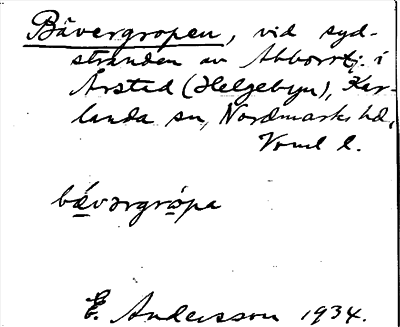 Bävergropen, vid syd-
stranden av Abborrtj. i
Årsted (Helgebyn), Kar-
landa sn, Nordmarks hd,
Vrml l.
bävərgrópa
E. Andersson 1934.